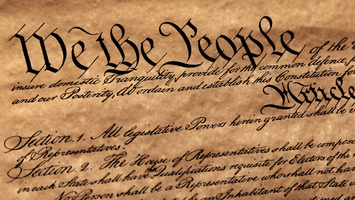 We the People of the
insure domestic Tranquility, provide for the common defence,
and our Posterity, do ordain and establish this Constitution for
Article
Section 1. All legislative Powers herein granted shall be
of Representatives.
Section 2. The House of Representatives shall be composed
in each State shall have the Qualifications requisite for Electors of the
No Person shall be a Representative who shall not ha
an Inhabitant of that State